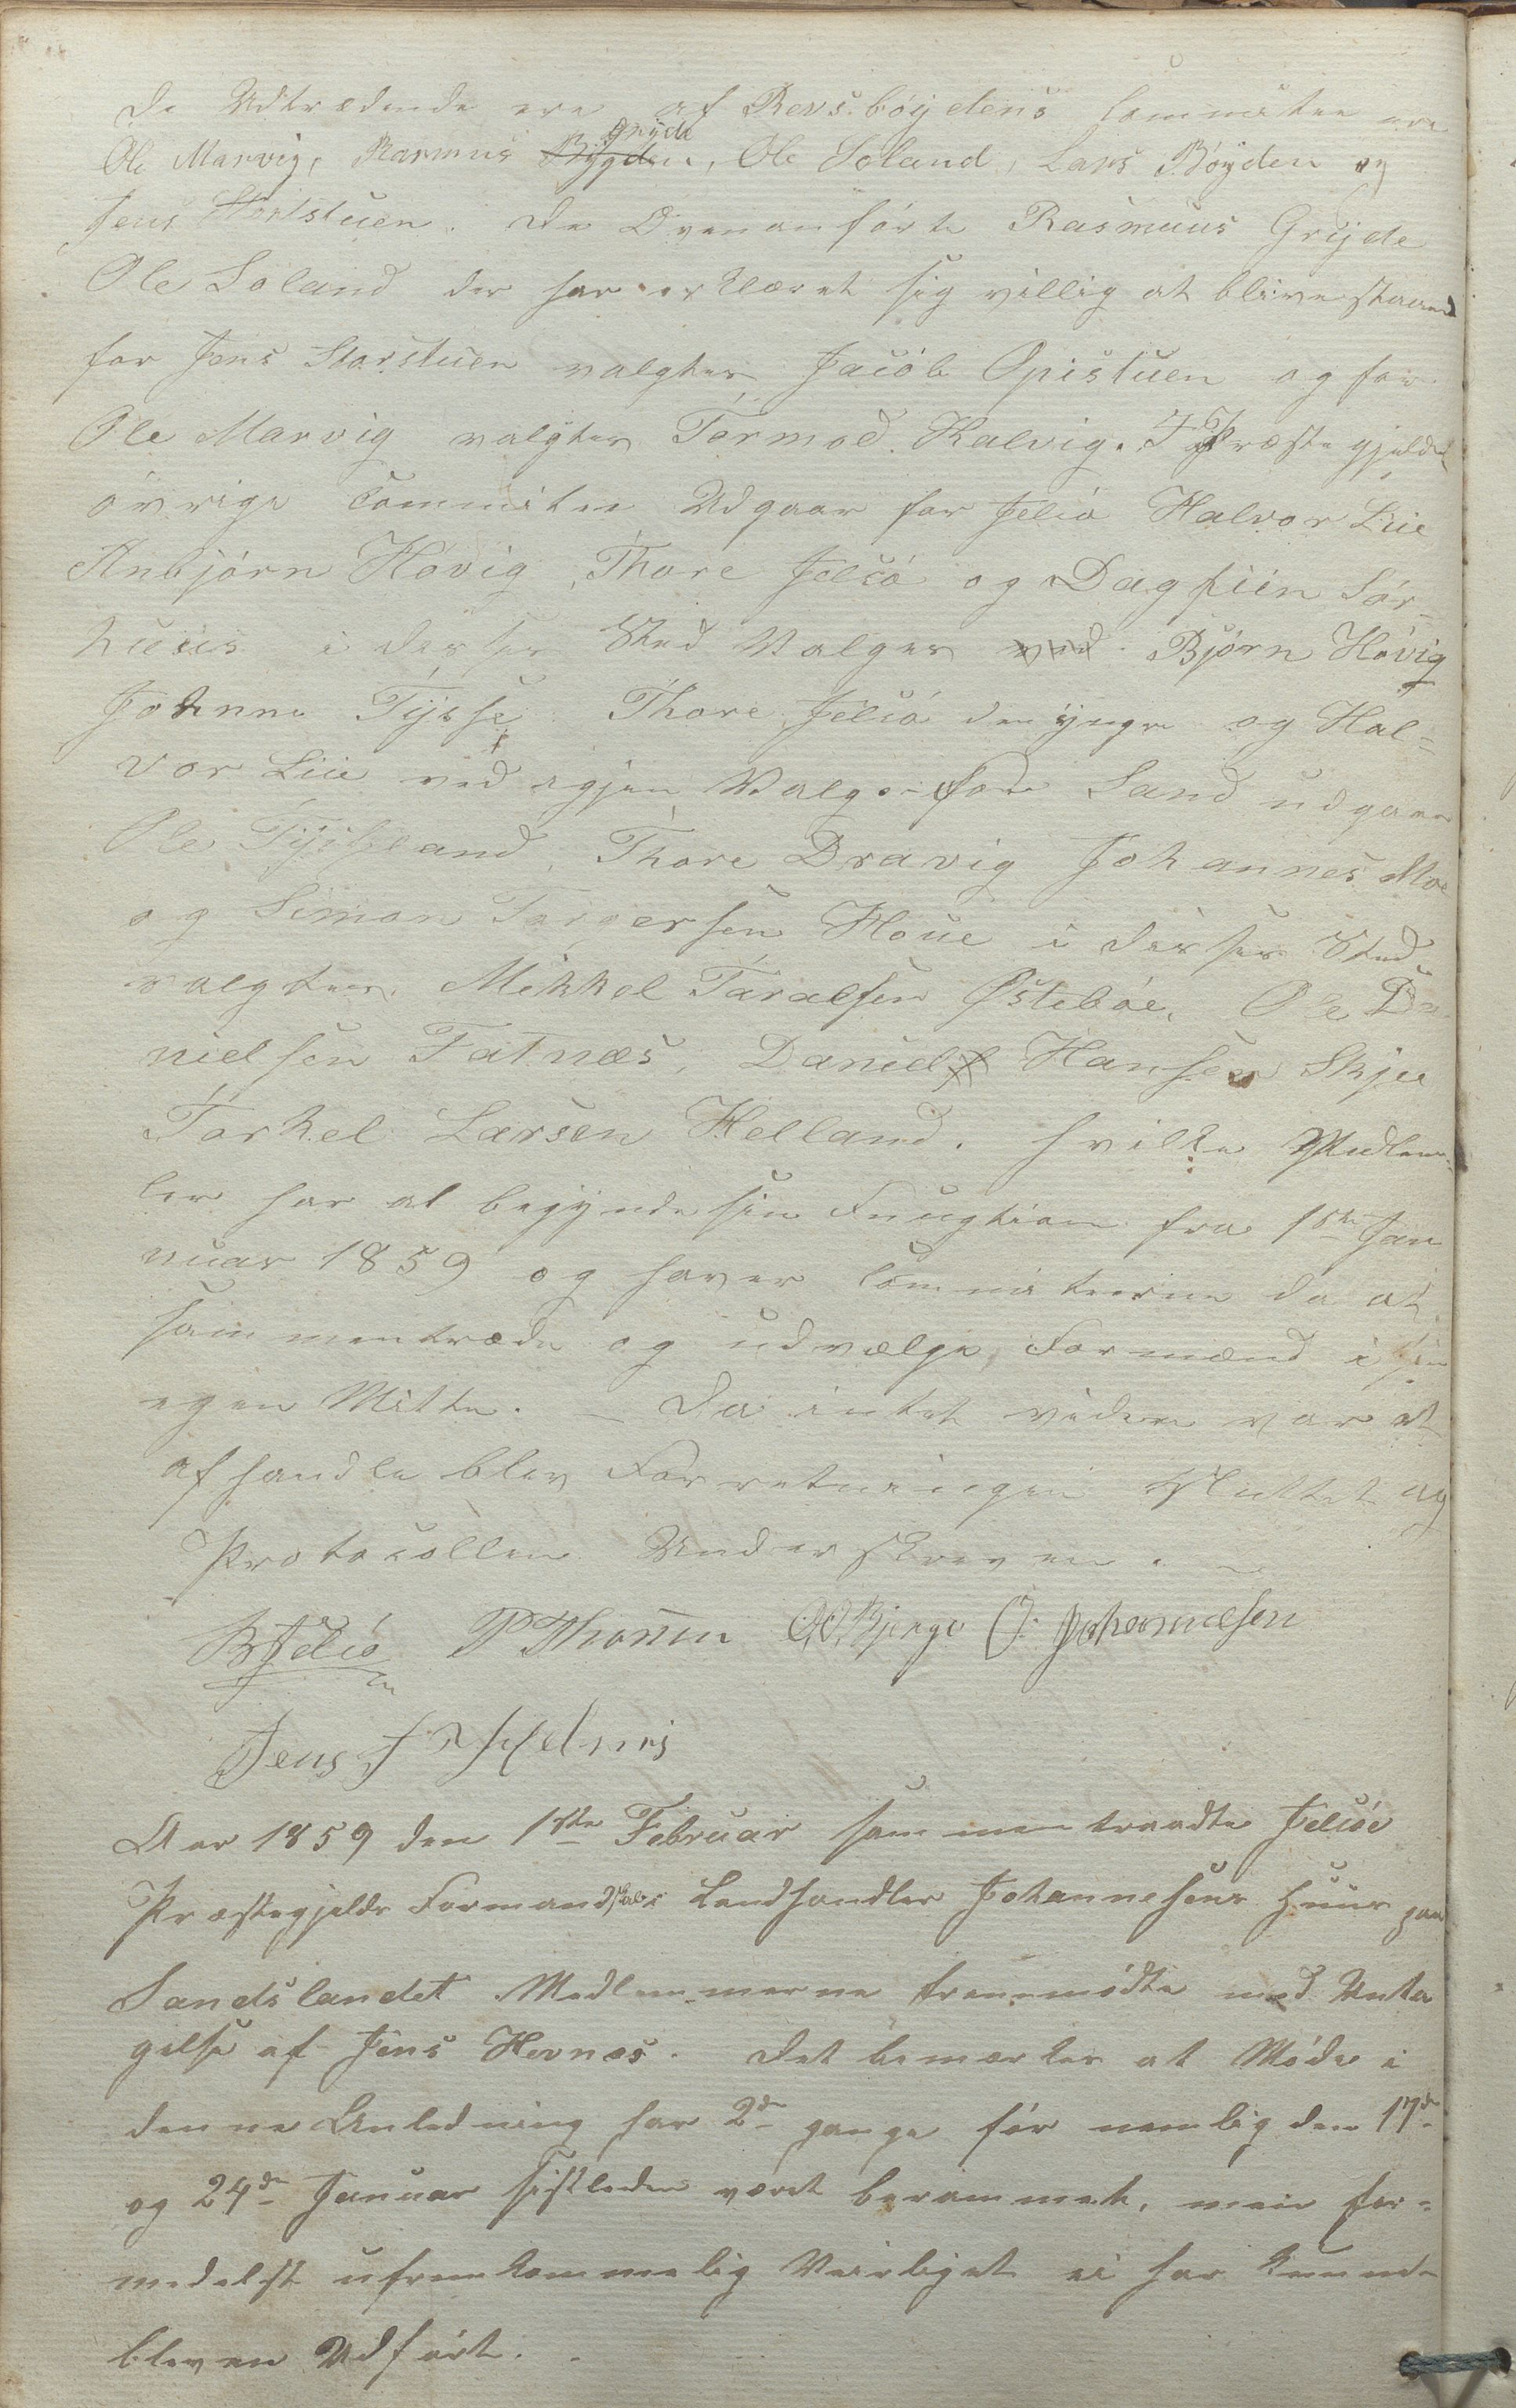 De Udtrædende ere af Revsböydens Commiteen ere
Gryde
Ole Marvig, Rasmus Bygden, Ole Soland, Lars Böyden og
Jens Storstuen. De Ovenanförte Rasmuus Gryde
Ole Soland der har erklæret sig villig at blive staaend
for Jens Storstuen valgtes Jacob Opistuen og for
Ole Marvig valgtes Tormod Kalvig. I Præstegjeldet
övrige Commiteer Udgaar for Jelsö Halvor Lie
Anbjörn Hövig, Thore Jelsö og Dagfiin Sör-
huus i derses Sted Valges ved Björn Hövig
Johanne Tysse Thore Jelsö den yngre og Hal=
vor Lie ved igjen Valg. for Sand udgaar
Ole Tysseland, Thore Dravig Johannes Moe
og Simon Torgersen Houe i derses Sted
valgtes Mikkel Taralsen Østeböe, Ole Da-
nielsen Fatnæs, Daniel Hansen Skjee
Torkel Larsen Helland. hvilke Medlem-
ler har at begynde sin Fungtion fra 1ste Jan
nuar 1859 og haver Commiteerne da at
sammentræde og udvælge Formænd i sin
egen Mitte. _ Da intet videre var at
afhandle blev Forretningen Sluttet og
Protocollen Underskreven. _
B Jelsö P Thorsen O. O. Bjerge O. Johannesen
Jens J
Aar 1859 den 1ste Februar sammentraadte Jelsöe
Præstegjelds Formandskab i Landhandler Johannesens Huus paa
Sandslandet Medlemmerne fremmödte med Unta
gelse af Jens Hevnæs. Det bemærkes at Möde i
denne Anledning har 2de gange för nemlig den 17de
og 24de Januar sistleden været berammet, men for=
medelst ufremkommelig Veirliget ei har kunnet
bleven Udfört.